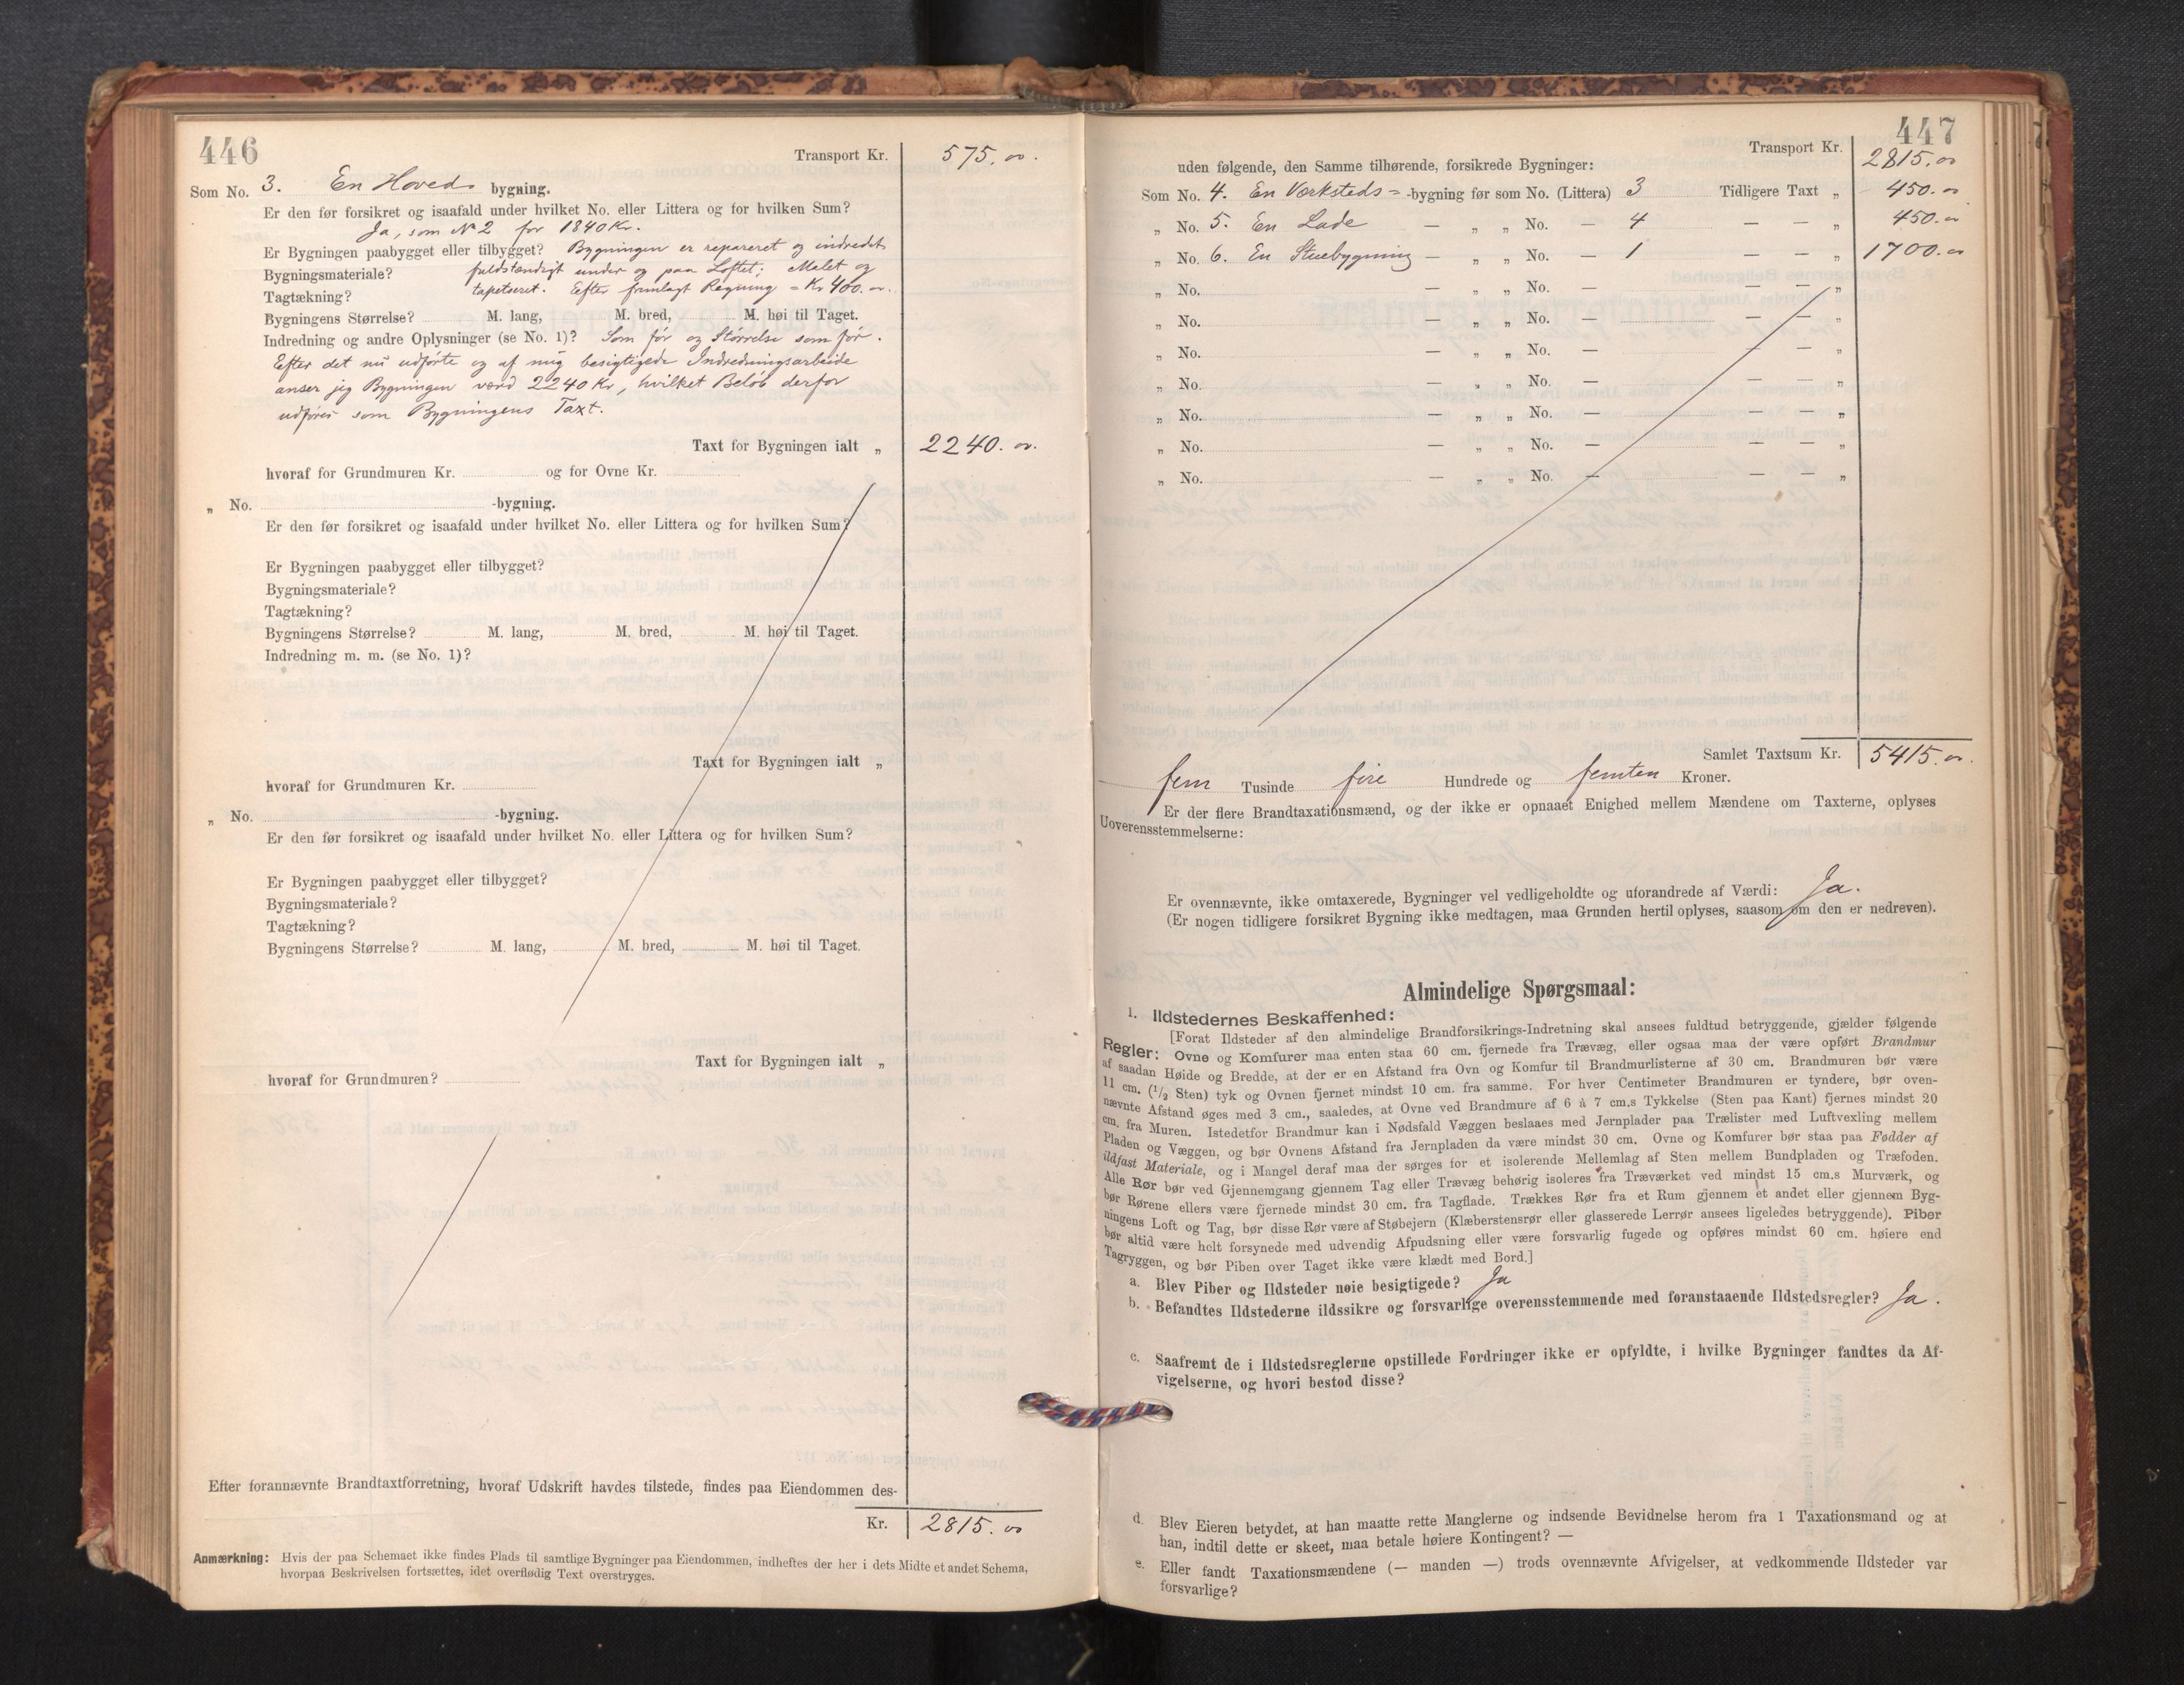 446
Transport Kr. 575.00.
Som No. 3. En Hoveds bygning.
Er den før forsikret og isaafald under hvilket No. eller Littera og for hvilken Sum?
Ja, som № 2 for 1840 Kr.
Er Bygningen paabygget eller tilbygget? Bygningen er repareret og indredet
Bygningsmateriale? fuldstændigt under og paa Loftet; Malet og
Tagtækning? tapetseret. Efter fremlagt Regning = Kr 400.00.
Bygningens Størrelse? M. lang, M. bred, M. høi til Taget.
Indredning og andre Oplysninger (se No. 1)? Som før og Størrelse som før.
Efter det nu udførte og af mig besigtigede Indredningsarbeide
anser jeg Bygningen værd 2240 Kr, hvilket Beløb derfor
udføres som Bygningens Taxt.
Taxt for Bygningen ialt „ 2240.00.
hvoraf for Grundmuren Kr. og for Ovne Kr.
„ No. -bygning.
Er den før forsikret og isaafald under hvilket No. eller Littera og for hvilken Sum?
Er Bygningen paabygget eller tilbygget?
Bygningsmateriale?
Tagtækning?
Bygningens Størrelse? M. lang, M. bred, M. høi til Taget.
Indredning m. m. (se No. 1)?
Taxt for Bygningen ialt „
hvoraf for Grundmuren Kr.
„ No. -bygning.
Er den før forsikret og isaafald under hvilket No. eller Littera og for hvilken Sum?
Er Bygningen paabygget eller tilbygget?
Bygningsmateriale?
Tagtækning?
Bygningens Størrelse? M. lang, M. bred, M. høi til Taget.
Taxt for Bygningen ialt „
hvoraf for Grundmuren?
Efter forannævnte Brandtaxtforretning, hvoraf Udskrift havdes tilstede, findes paa Eiendommen des-
Kr. 2815.00
Anmærkning: Hvis der paa Schemaet ikke findes Plads til samtlige Bygninger paa Eiendommen, indheftes der her i dets Midte et andet Schema,
hvorpaa Beskrivelsen fortsættes, idet overflødig Text overstryges.
447
Transport Kr. 2815.00
uden følgende, den Samme tilhørende, forsikrede Bygninger:
Som No. 4. En Værksteds= -bygning før som No. (Littera) 3 Tidligere Taxt „ 450.00
„ No. 5. En Lade — „ „ No. — 4 — — „ 450.00
„ No. 6. En Stuebygning — „ „ No. — 1 — — „ 1700.00
„ No. — „ „ No. — — — „
„ No. — „ „ No. — — — „
„ No. — „ „ No. — — — „
„ No. — „ „ No. — — — „
„ No. — „ „ No. — — — „
„ No. — „ „ No. — — — „
„ No. — „ „ No. — — — „
Samlet Taxtsum Kr. 5415.00.
fem Tusinde fire Hundrede og femten Kroner.
Er der flere Brandtaxationsmænd, og der ikke er opnaaet Enighed mellem Mændene om Taxterne, oplyses
Uoverensstemmelserne:
Er ovennævnte, ikke omtaxerede, Bygninger vel vedligeholdte og uforandrede af Værdi: Ja.
(Er nogen tidligere forsikret Bygning ikke medtagen, maa Grunden hertil oplyses, saasom om den er nedreven).
Almindelige Spørgsmaal:
1. Ildstedernes Beskaffenhed:
[Forat Ildsteder af den almindelige Brandforsikrings-Indretning skal ansees fuldtud betryggende, gjælder følgende
Regler: Ovne og Komfurer maa enten staa 60 cm. fjernede fra Trævæg, eller ogsaa maa der være opført Brandmur
af saadan Høide og Bredde, at der er en Afstand fra Ovn og Komfur til Brandmurlisterne af 30 cm. Brandmuren bør være
11 cm. (1/2 Sten) tyk og Ovnen fjernet mindst 10 cm. fra samme. For hver Centimeter Brandmuren er tyndere, bør oven-
nævnte Afstand øges med 3 cm., saaledes, at Ovne ved Brandmure af 6 à 7 cm.s Tykkelse (Sten paa Kant) fjernes mindst 20
cm. fra Muren. Istedetfor Brandmur kan i Nødsfald Væggen beslaaes med Jernplader paa Trælister med Luftvexling mellem
Pladen og Væggen, og bør Ovnens Afstand fra Jernpladen da være mindst 30 cm. Ovne og Komfurer bør staa paa Fødder af
ildfast Materiale, og i Mangel deraf maa der sørges for et isolerende Mellemlag af Sten mellem Bundpladen og Træfoden.
Alle Rør bør ved Gjennemgang gjennem Tag eller Trævæg behørig isoleres fra Træværket ved mindst 15 cm.s Murværk, og
bør Rørene ellers være fjernede mindst 30 cm. fra Tagflade. Trækkes Rør fra et Rum gjennem et andet eller gjennem Byg-
ningens Loft og Tag, bør disse Rør være af Støbejern (Klæberstensrør eller glasserede Lerrør ansees ligeledes betryggende). Piber
bør altid være helt forsynede med udvendig Afpudsning eller være forsvarlig fugede og opføres mindst 60 cm. høiere end
Tagryggen, og bør Piben over Taget ikke være klædt med Bord.]
a. Blev Piber og Ildsteder nøie besigtigede? Ja
b. Befandtes Ildstederne ildssikre og forsvarlige overensstemmende med foranstaaende Ildstedsregler? Ja.
c. Saafremt de i Ildstedsreglerne opstillede Fordringer ikke er opfyldte, i hvilke Bygninger fandtes da Af-
vigelserne, og hvori bestod disse?
d. Blev Eieren betydet, at han maatte rette Manglerne og indsende Bevidnelse herom fra 1 Taxationsmand og at
han, indtil dette er skeet, maa betale høiere Kontingent? —
e. Eller fandt Taxationsmændene (— manden —) trods ovennævnte Afvigelser, at vedkommende Ildsteder var
forsvarlige?